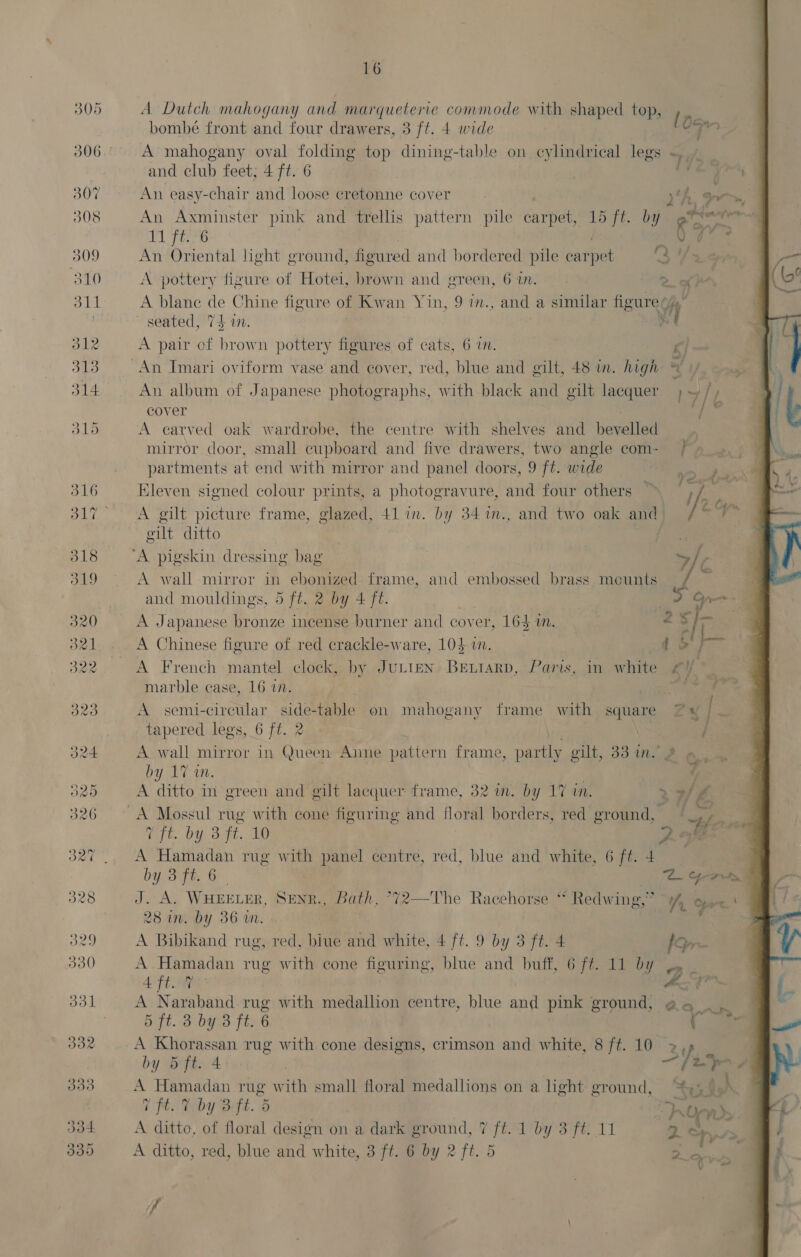 16
305 A Dutch mahogany and marqueterie commode with shaped top,
bombé front and four drawers, 3 ft. 4 wide
306 A mahogany oval folding top dining-table on cylindrical legs
and club feet, 4 ft. 6
307 An easy-chair and loose cretonne cover
308 An Axminster pink and trellis pattern pile carpet, 15 ft. by
11 ft. 6
309 An Oriental light ground, figured and bordered pile carpet
310 A pottery figure of Hotei, brown and green, 6 in.
311 A blanc de Chine figure of Kwan Yin, 9 in., and a similar figure
seated, 7½ in.
312 A pair of brown pottery figures of cats, 6 in.
313 An Imari oviform vase and cover, red, blue and gilt, 48 in. high
314 An album of Japanese photographs, with black and gilt lacquer
cover
315 A carved oak wardrobe, the centre with shelves and bevelled
mirror door, small cupboard and five drawers, two angle com-
partments at end with mirror and panel doors, 9 ft. wide
316 Eleven signed colour prints, a photogravure, and four others
317 A gilt picture frame, glazed, 41 in. by 34 in., and two oak and
gilt ditto
318 A pigskin dressing bag
319 A wall mirror in ebonized frame, and embossed brass mounts
and mouldings, 5 ft. 2 by 4 ft.
320 A Japanese bronze incense burner and cover, 16½ in.
321 A Chinese figure of red crackle-ware, 10½ in.
322 A French mantel clock, by JULIEN BELIARD, Paris, in white
marble case, 16 in.
323 A semi-circular side-table on mahogany frame with square
tapered legs, 6 ft. 2
324 A wall mirror in Queen Anne pattern frame, partly gilt, 33 in.
by 17 in.
325 A ditto in green and gilt lacquer frame, 32 in. by 17 in.
326 A Mossul rug with cone figuring and floral borders, red ground,
7 ft. by 3 ft. 10
327 A Hamadan rug with panel centre, red, blue and white, 6 ft. 4
by 3 ft. 6
328 J. A. WHEELER, SENR., Bath, '72—The Racehorse “Redwing,”
28 in. by 36 in.
329 A Bibikand rug, red, blue and white, 4 ft. 9 by 3 ft. 4
330 A Hamadan rug with cone figuring, blue and buff, 6 ft. 11 by
4 ft. 7
331 A Naraband rug with medallion centre, blue and pink ground,
5 ft. 3 by 3 ft. 6
332 A Khorassan rug with cone designs, crimson and white, 8 ft. 10
by 5 ft. 4
333 A Hamadan rug with small floral medallions on a light ground,
7 ft. 7 by 3 ft. 5
334 A ditto, of floral design on a dark ground, 7 ft. 1 by 3 ft. 11
335 A ditto, red, blue and white, 3 ft. 6 by 2 ft. 5